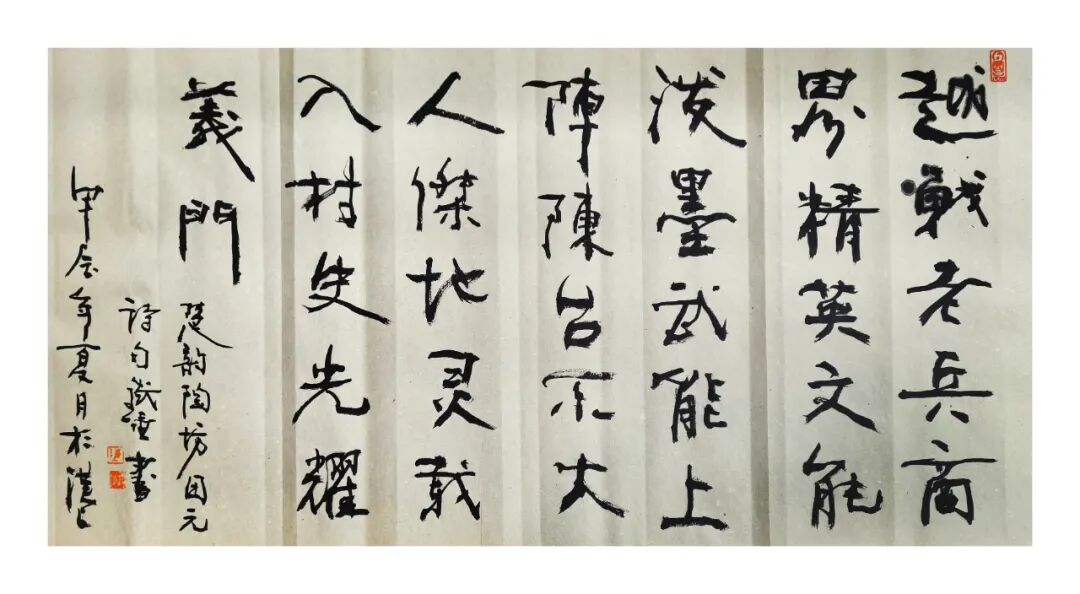 越戰老兵商
界精英文能
潑墨武能上
陣陳台不大
人傑地灵載
入村史光耀
義門
楚韵陶坊田元
詩句 書
甲辰年夏月於漢上